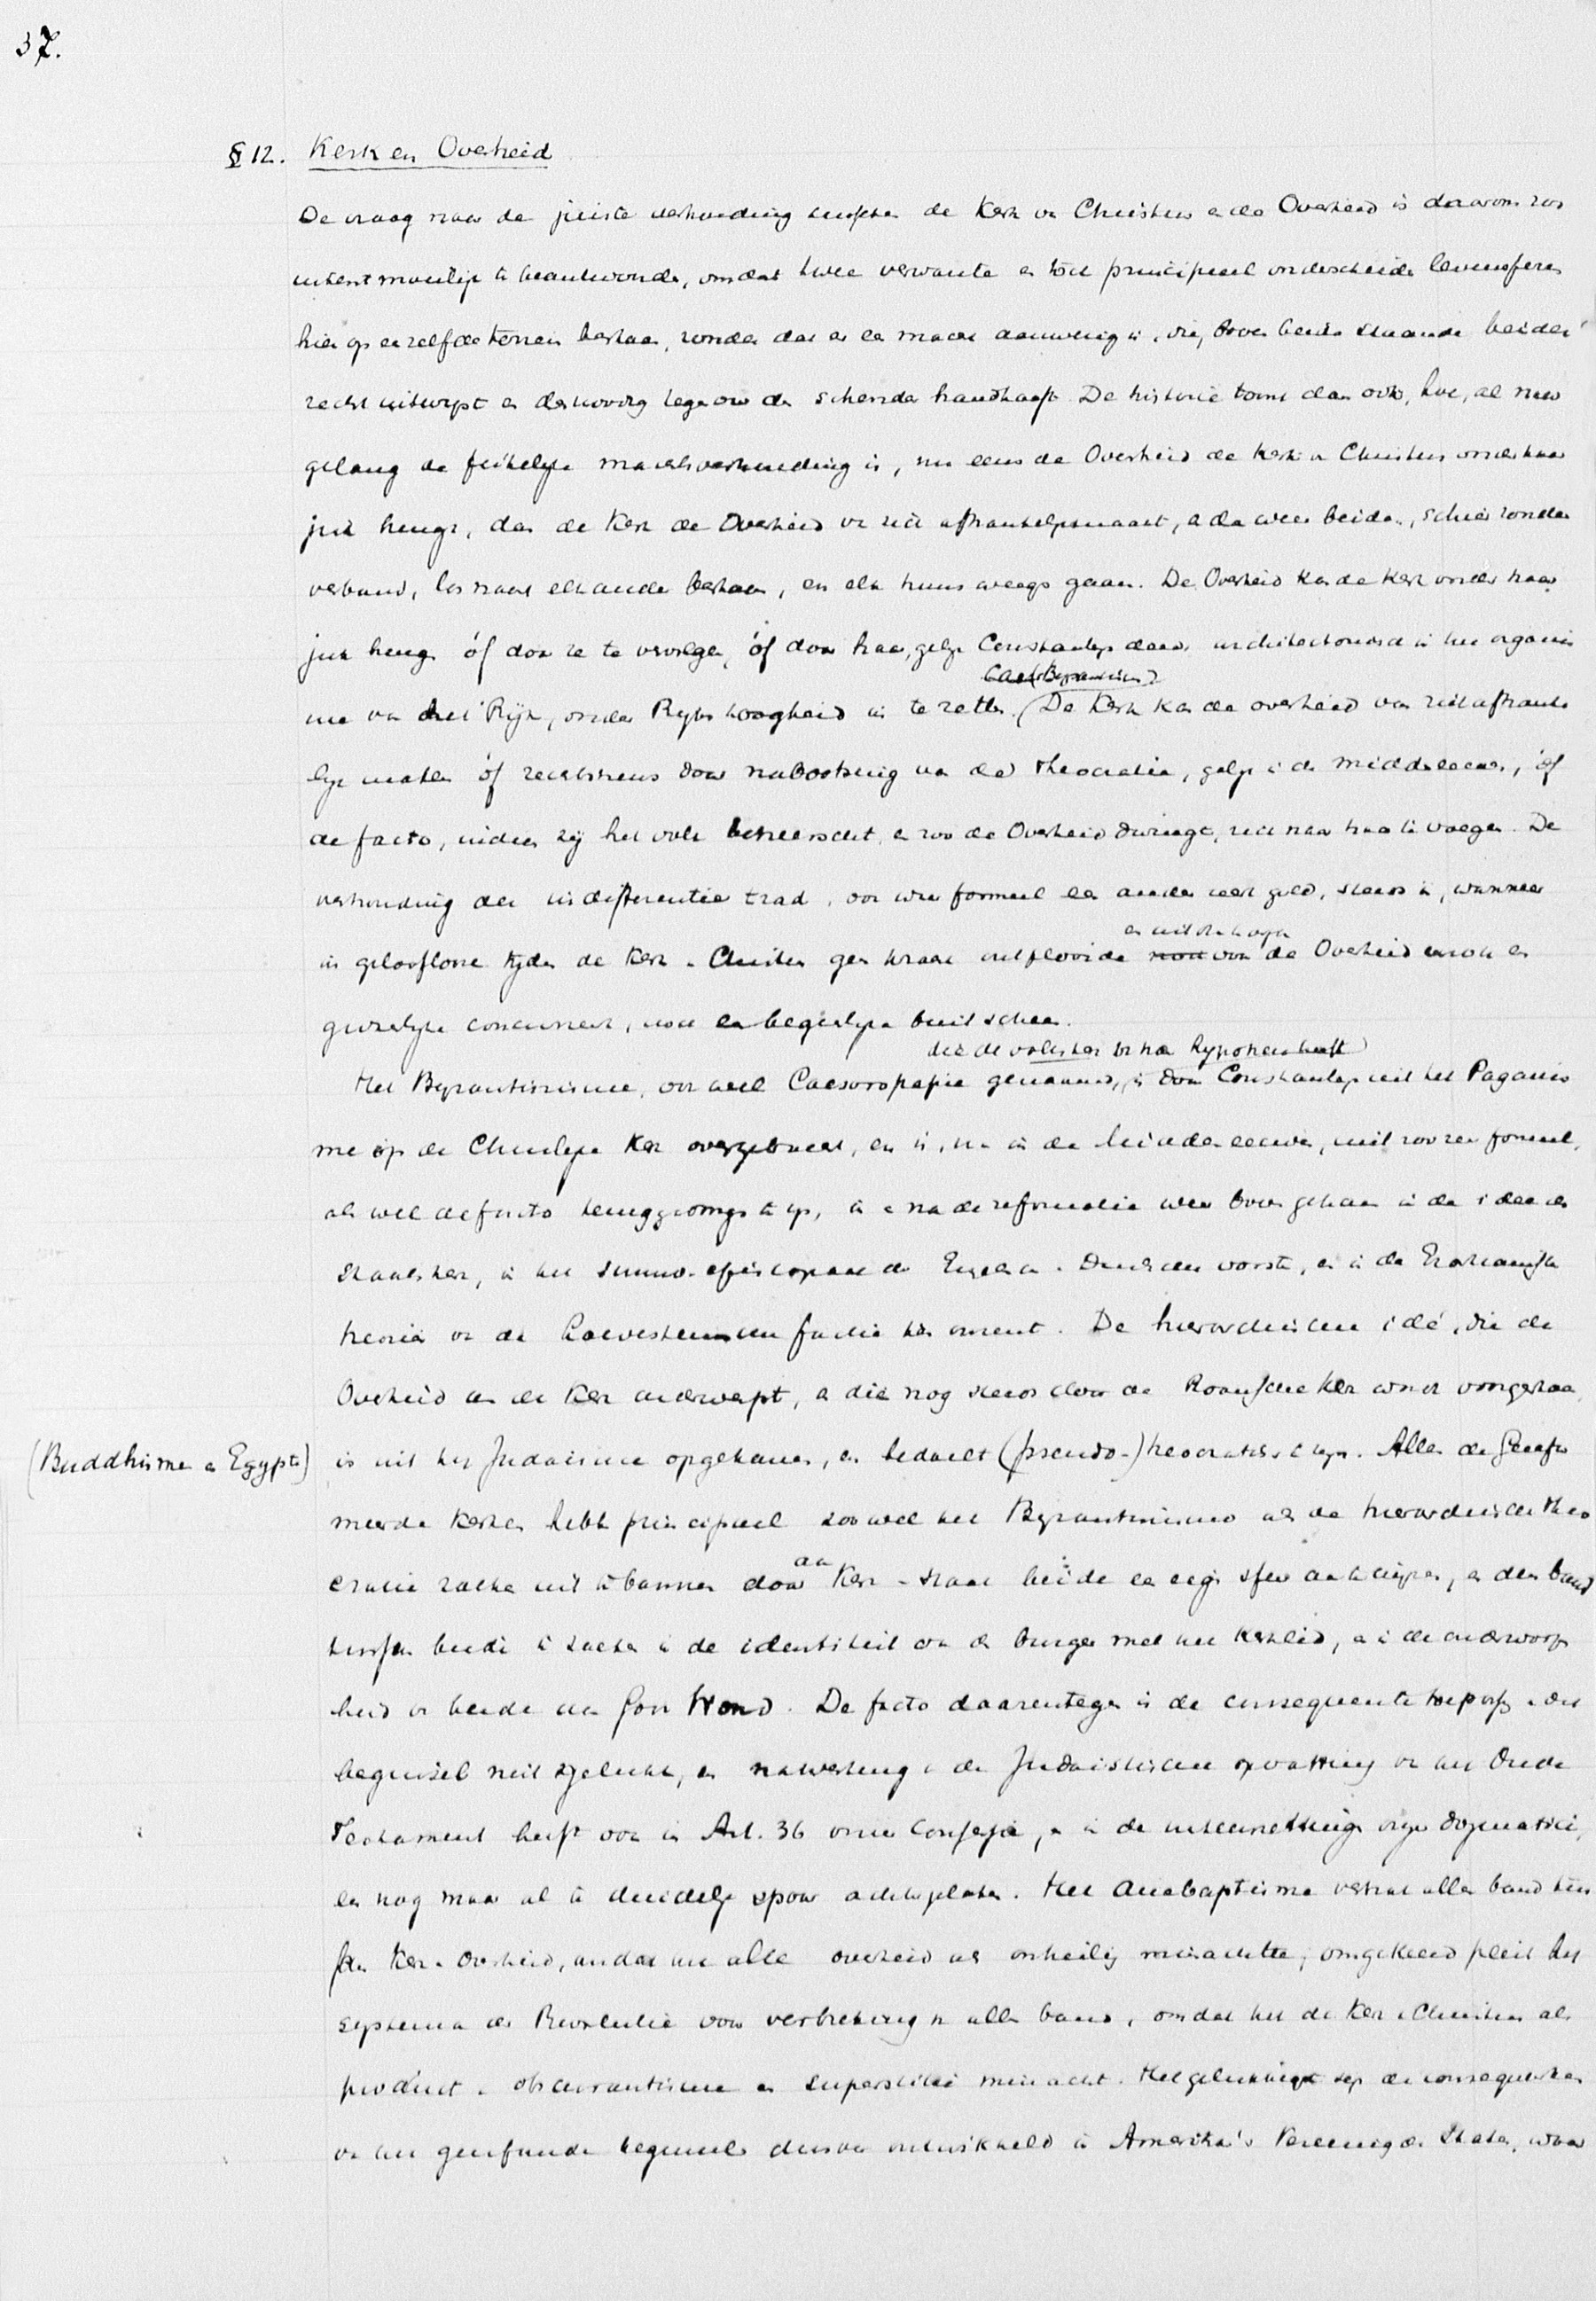 37.
§ 12. Kerk en Overheid
De vraag naar de juiste verhouding tusschen de Kerk v Christus en de Overheid is daarom zoo
uiterst moeilijk te beantwoorden, omdat twee verwante en toch principieel onderscheiden levenssferen
hier op eenzelfde terrein bestaan, zonder dat er een macht aanwezig is, die, boven beide staande beider
recht uitwijst en desnoods tegenover de schender handhaaft. De historie toont dan ook, hoe, al naar
gelang de feitelijke machtsverhouding is, nu eens de Overheid de Kerk v Christus onder haar
juk brengt, dan de Kerk de Overheid v zich afhankelijk maakt, en dan weer beiden, schier zonder
verband, los naast elkander bestaan, en elk huns weegs gaan. De Overheid kan de Kerk onder haar
juk brengen óf door ze te vervolgen, óf door haar, gelijk Constantijn deed, architectonisch in het organis
(Byzantisme)
me van het Rijk, onder Rijks hoogheid in te zetten. De Kerk kan de overheid van zich afhanke
lijk maken óf rechtstreeks door nabootsing van de theocratie, gelijk in de Middeleeuwen, óf
de facto, indien zij het volk beheerscht, en zoo de Overheid dwingt, zich naar haar te voegen. De
verhouding der indifferentie trad, ook waar formeel een ander recht gold, steeds in, wanneer
in gelooflooze tijden de Kerk v Christus geen kracht ontplooide voor de Overheid een
gevaarlijke concurrent, noch een begeerlijke buit scheen.
die de volks het Rijksheerschaft
Het Byzantinisme, ook wel Caesaropapie genaamd, is door Constantijn uit het Paganis
me op de Christelijke Kerk overgebracht, en is, na in de middeleeuwen, niet zoozeer formeel,
als wel de facto teruggedrongen te zijn, in en na de reformatie weer boven gekomen in de idee der
Staatskerk, in het summ-episcopaat der Engelsche en Duitschen vorsten, en in de Erastiaansche
theorie v de Loevesteinsche factie hier te lande. De hierarchische idé, die de
Overheid aan de Kerk onderwerpt, en die nog steeds door de Roomsche Kerk wordt voorgestaan,
(Buddhisme en Egypte) is uit het Judaisme opgekomen, en bedoelt (pseudo-)theocratisch te zijn. Alleen de Gerefor
meerde Kerken hebben principieel zoowel het Byzantinisme als de hierarchische theo
cratie zoeken uit te bannen door aan Kerk en Staat beide een eigen sfeer aan te wijzen, en den band
tusschen beide te zoeken in de identiteit van de burger met het Kerklid, en in de onderworpen
heid v beide aan Gods Woord. De facto daarentegen is de consequente toepassing v dit
beginsel niet gelukt, en nawerking v de Judaistische opvatting v het Oude
Testament heeft ook in Art. 36 onzer Confessie, en in de uiteenzetting onzer dogmatici,
een nog maar al te duidelijk spoor achtergelaten. Het Anabaptisme verbrak allen band tus
schen Kerk en Overheid, omdat het alle overheid als onheilig minachtte; omgekeerd pleit het
systeem der Revolutie voor verbreking v allen band, omdat het de Kerk v Christus als
product v obscurantisme en superstitie minacht. Het gelukkigst zijn de consequenties
v het gereformeerde beginsel dusver ontwikkeld in Amerika's Vereenigde Staten, waar